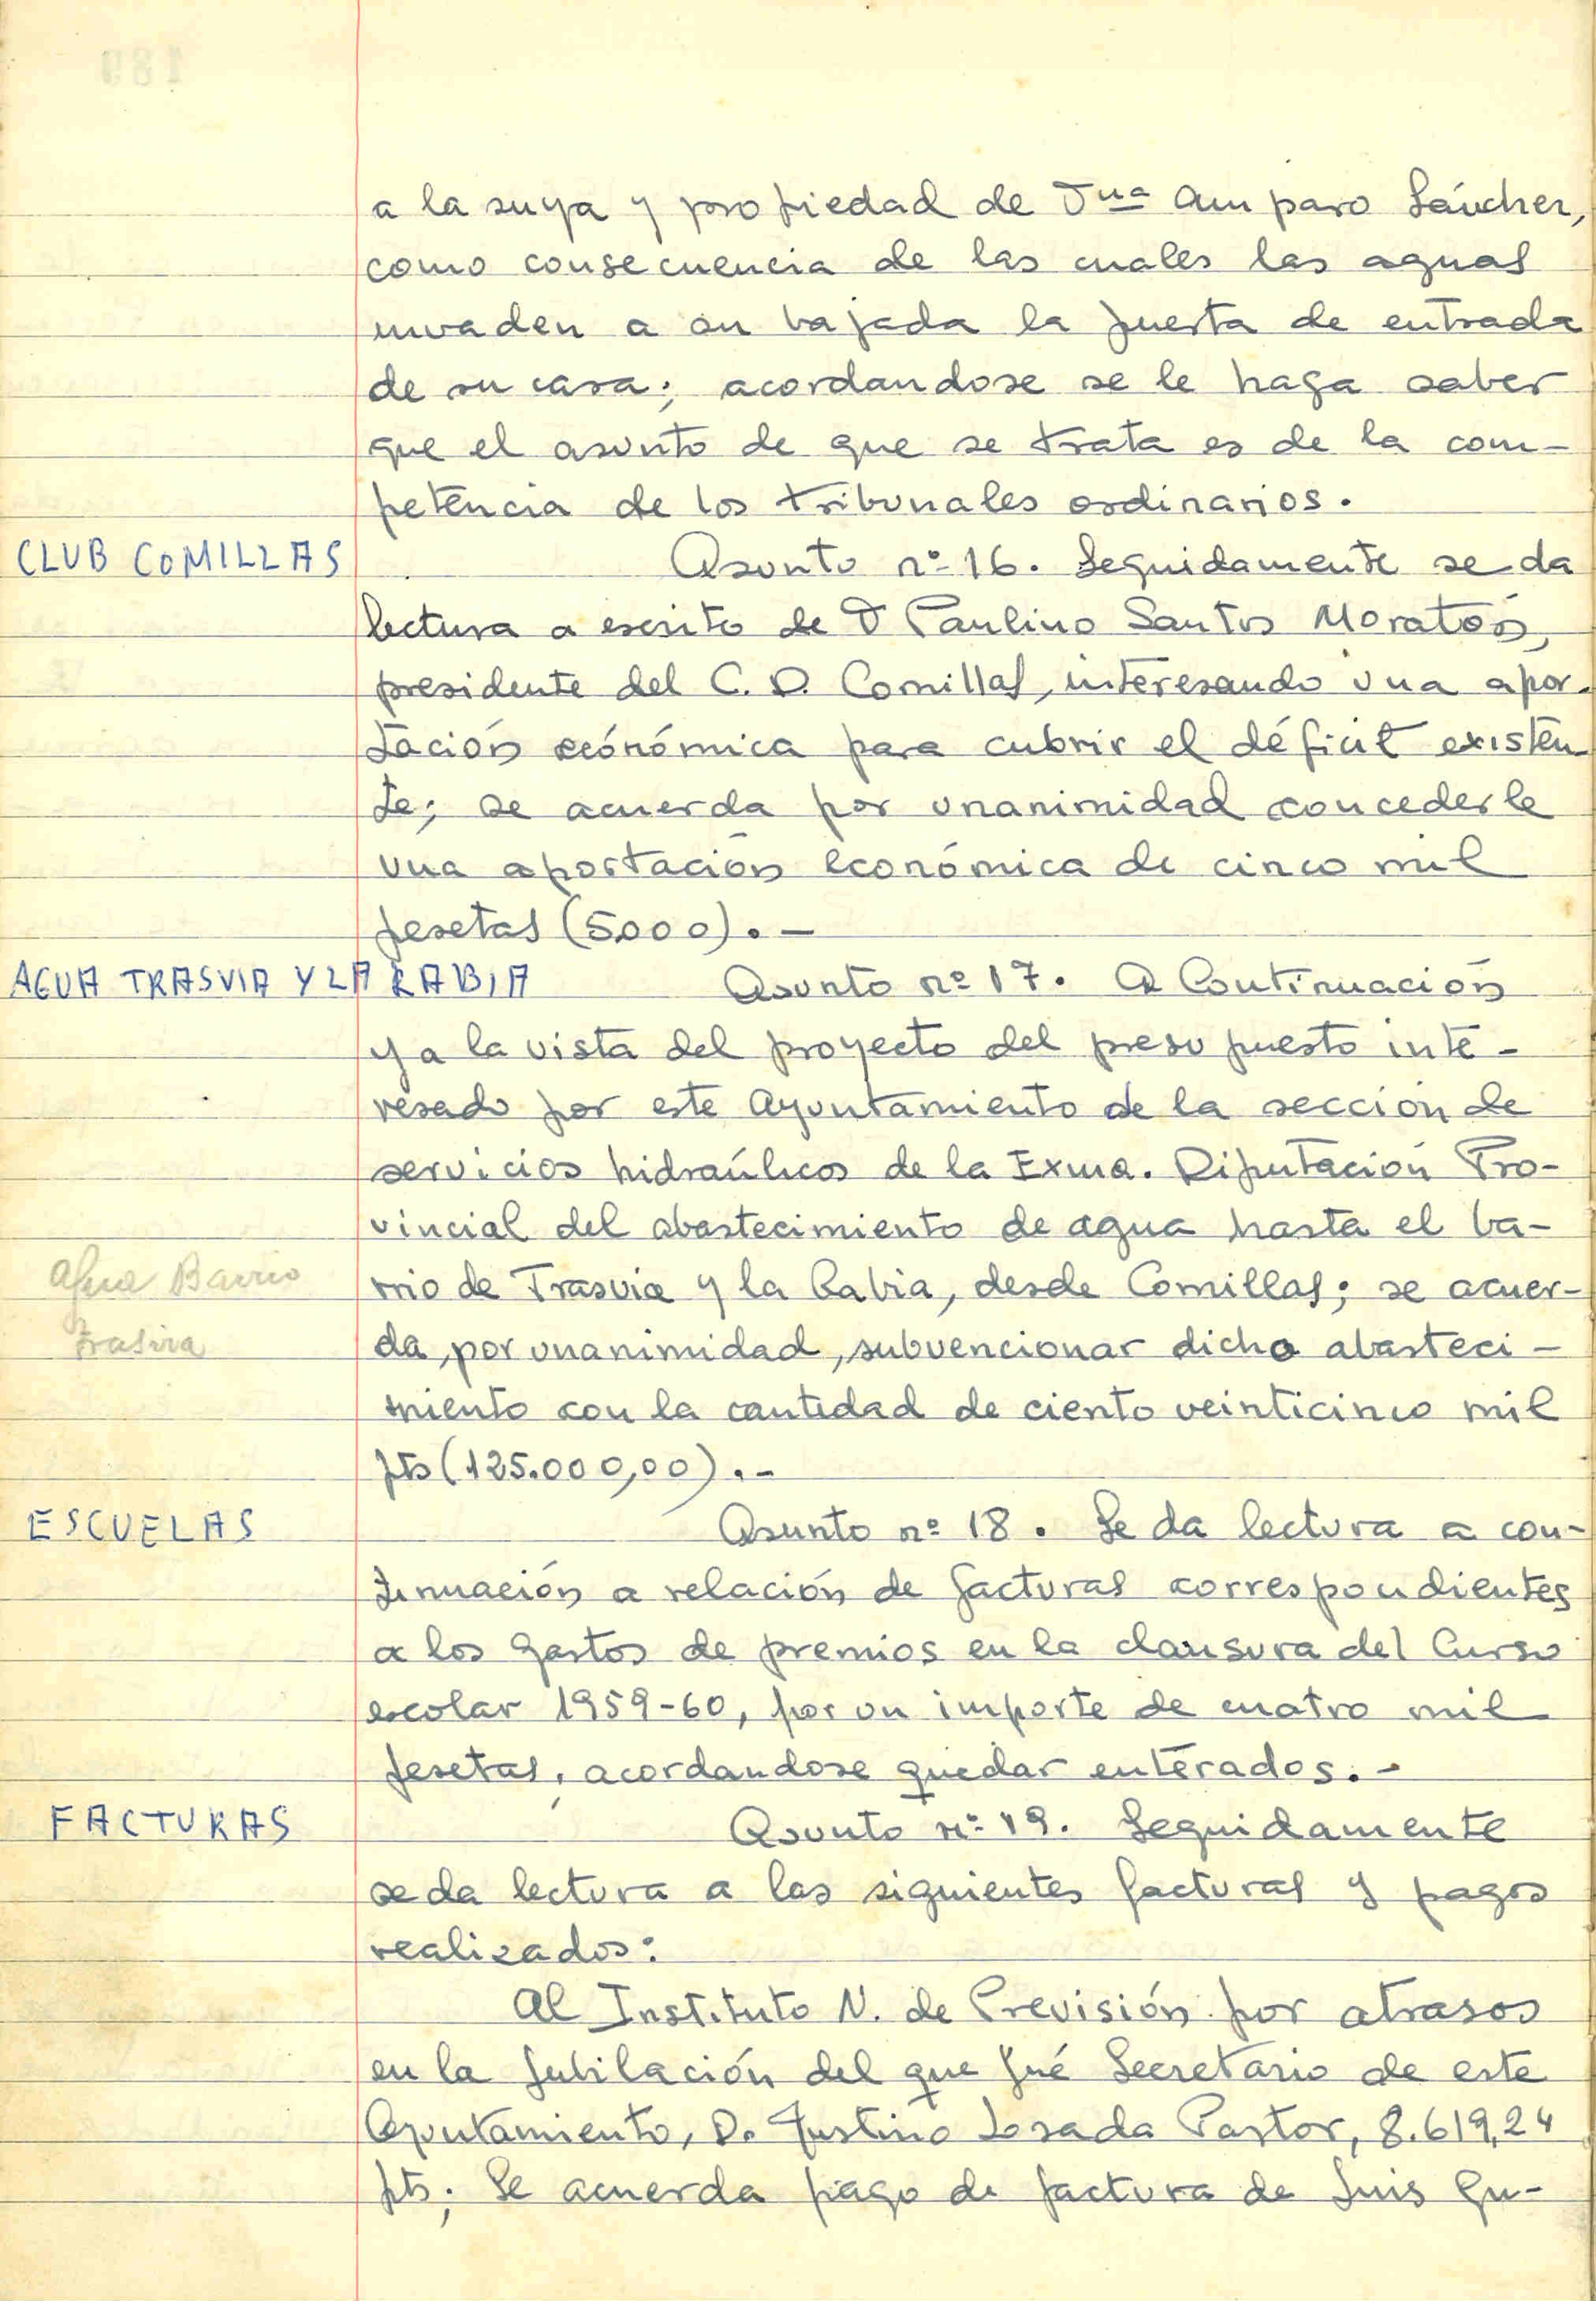 a la suya y propiedad de Dña Amparo Sánchez,
como consecuencia de las cuales las aguas
invaden a su bajada la puerta de entrada
de su casa; acordandose se le haga saber
que el asunto de que se trata es de la com-
petencia de los tribunales ordinarios.
CLUB COMILLAS
Asunto nº 16. Seguidamente se da
lectura a escrito de D Paulino Santos Moratón,
presidente del C. D. Comillas, interesando una apor-
tación económica para cubrir el déficit existen-
te; se acuerda por unanimidad concederle
una aportación económica de cinco mil
pesetas (5000). -
AGUA TRASVIA Y LA RABIA
Asunto nº 17. A Continuación
y a la vista del proyecto del presupuesto inte-
resado por este Ayuntamiento de la sección de
servicios hidraúlicos de la Exma. Diputación Pro-
vincial del abastecimiento de agua hasta el ba-
rrio de Trasvia y la Rabia, desde Comillas; se acuer-
Agua Barrio
Trasvia
da, por unanimidad, subvencionar dicho abasteci-
miento con la cantidad de ciento veinticinco mil
pts (125.000,00). -
ESCUELAS
Asunto nº 18. Se da lectura a con-
tinuación a relación de facturas correspondientes
a los gastos de premios en la clausura del Curso
escolar 1959-60, por un importe de cuatro mil
pesetas, acordandose quedar enterados. -
FACTURAS
Asunto nº 19. Seguidamente
se da lectura a las siguientes facturas y pagos
realizados:
Al Instituto N. de Previsión por atrasos
en la jubilación del que fué Secretario de este
Ayuntamiento, D. Justino Losada Pastor, 8.619,24
pts; Se acuerda pago de factura de Luis Gu-
189